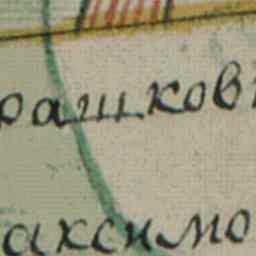 рашкові
аксимо